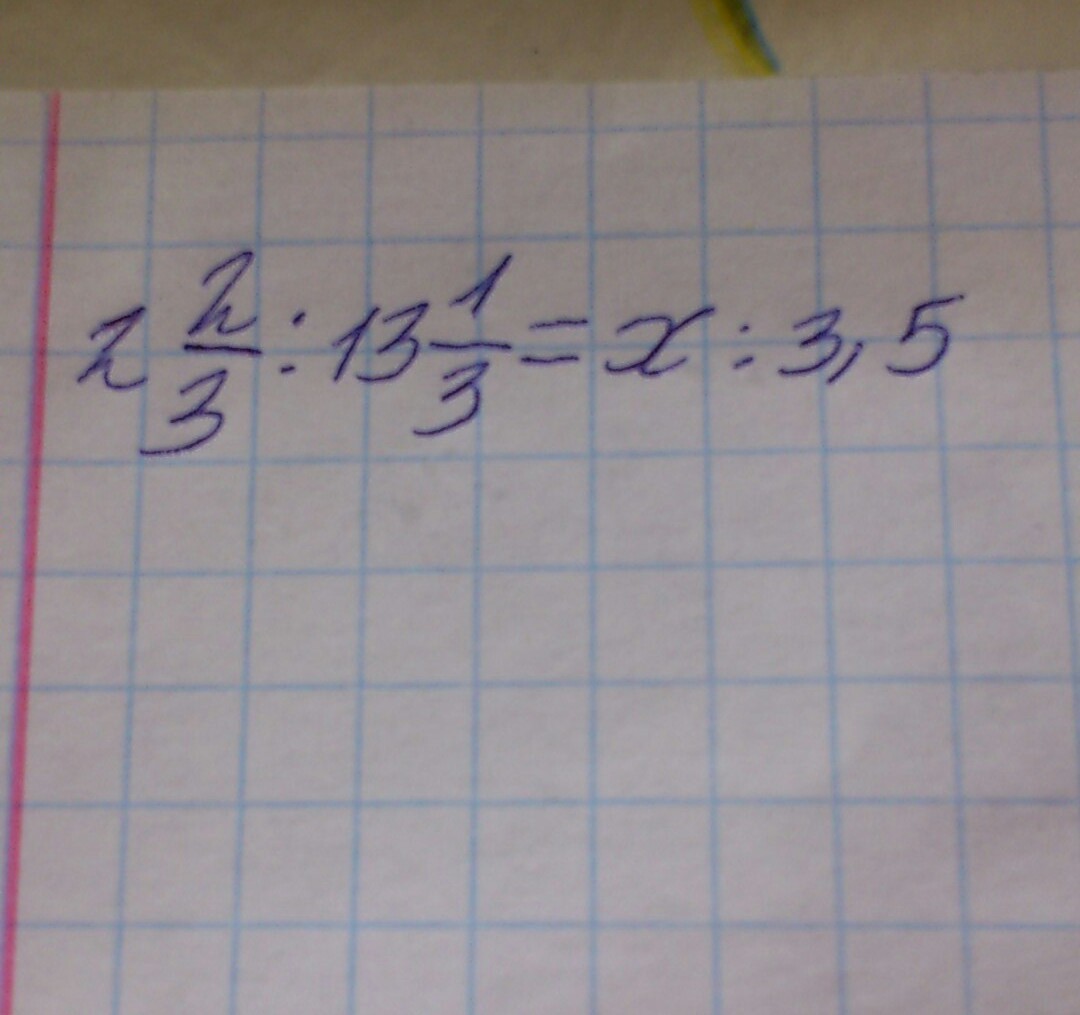 2 2/3 : 13 1/3 = x : 3,5